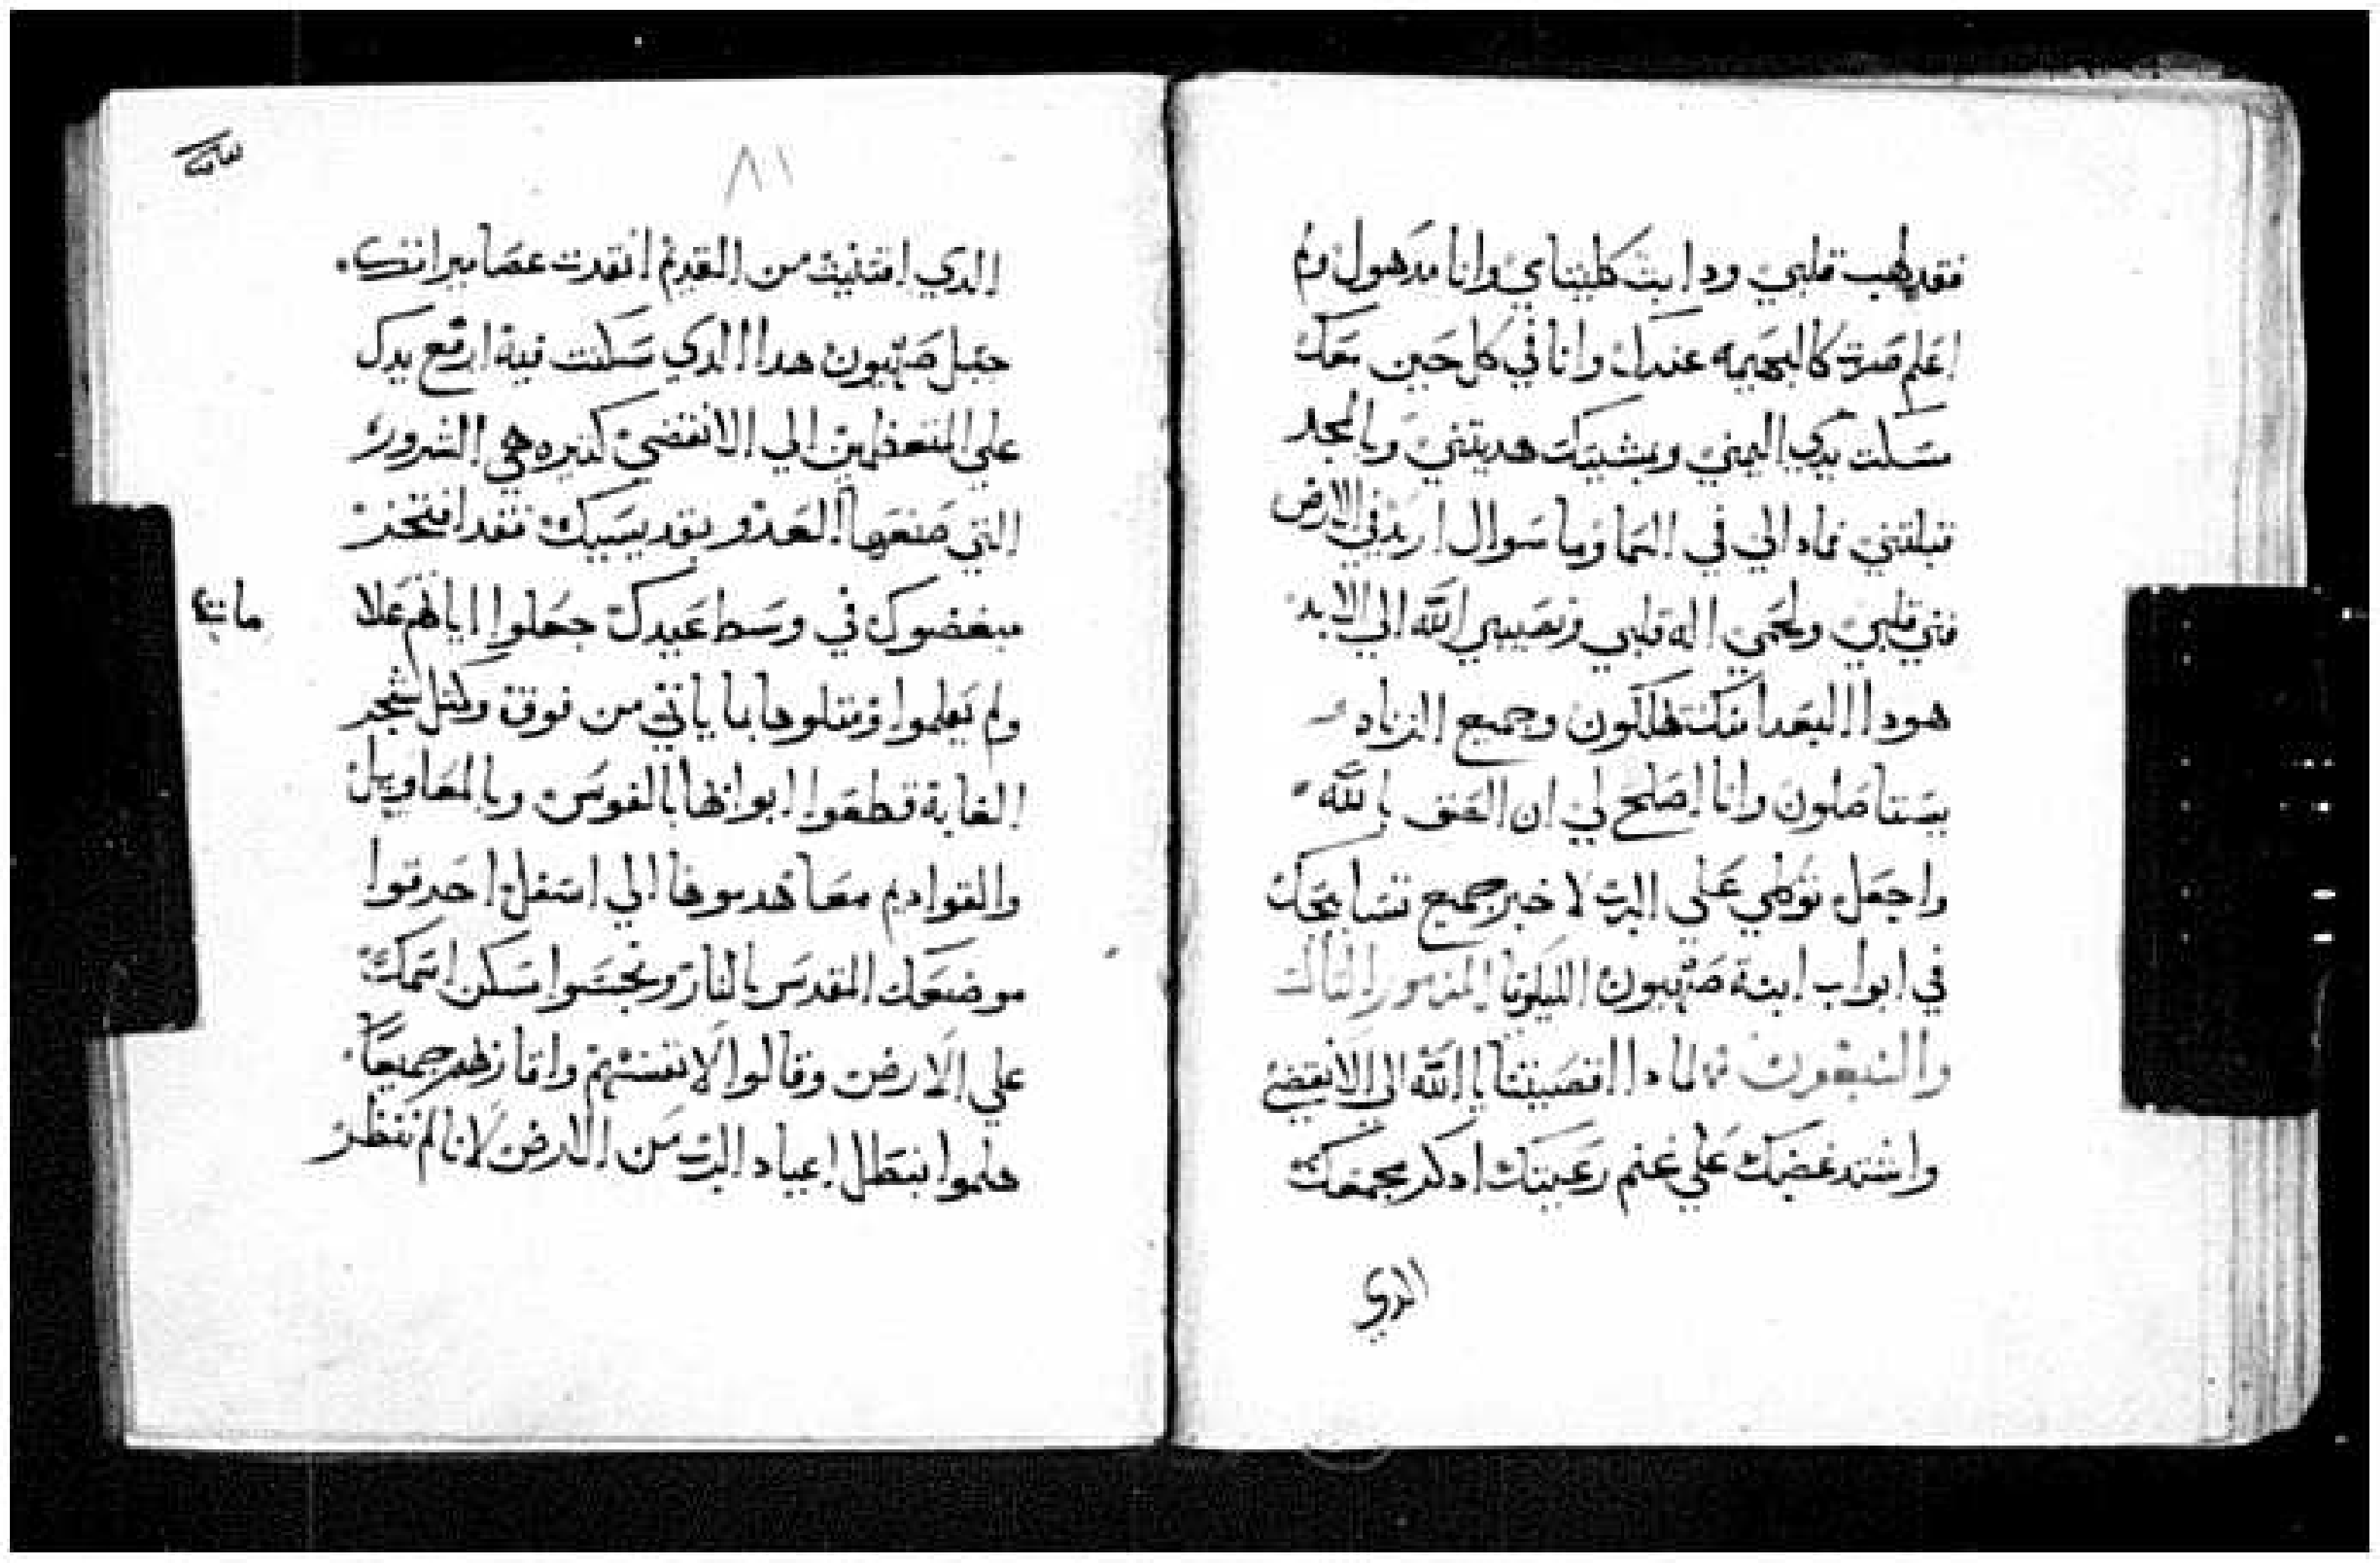 فقد لهب قلبي ودابت كليتاي وانا مدهول ولم
اعلم صرت كالبهيمه عندك وانا في كل حين معك
مسكت يدي اليمني وبمشيتك هديتني وبالمجد
قبلتني مادا لي في السما وما سوال اريد في الارض
فني قلبي ولحمي اله قلبي ونصيبي الله الي الابد
هودا البعدا منك يهلكون وجميع الزناه
يستاصلون وانا اصلح لي ان التصق بالله
واجعل توكلي علي الرب لاخبر جميع تسابيحك
في ابواب ابنة صهيون الليلويا المزمور التالت
والسبعون لمادا اقصيتنا يا الله الي الانقضي
واشتد غضبك علي غنم رعيتك ادكر مجمعك
الدي
٨١
الدي اقتنيت من القديم انقدت عصا ميراتك
جبل صهيون هدا الدي سكنت فية ارفع يدك
علي المتعظمين الي الانقضي كتيره هي الشرور
التي صنعها العدو بقديسيك فقد افتخر
مبغضوك في وسط عيدك جعلوا اياتهم علا
ماتا
ولم يعلموا ومتلوها بما ياتي من فوق وكتل شجر
الغابة قطعوا ابوابها بالفوس وبالمعاويل
والقوادم معا هدموها الي اسفل احرقوا
موضعك المقدس بالنار ونجسوا مسكن اسمك
علي الارض وقالوا لانفسهم واقاربهم جميعا
هلموا نبطل اعياد الرب من الارض لانا لم ننظر